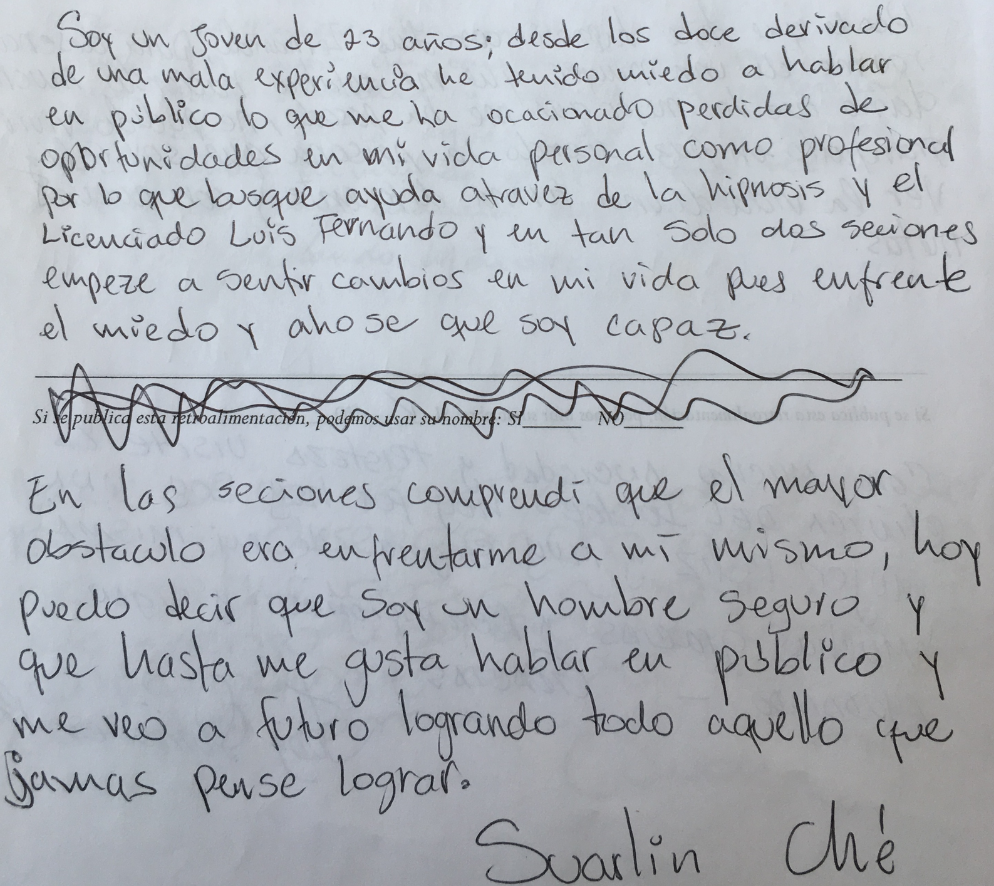 Soy un Joven de 23 años; desde los doce derivado
de una mala experiencia he tenido miedo a hablar
en público lo que me ha ocacionado perdidas de
oportunidades en mi vida personal como profesional
por lo que busque ayuda atravez de la hipnosis y el
Licenciado Luis Fernando y en tan solo dos seciones
empeze a sentir cambios en mi vida pues enfrente
el miedo y aho se que soy capaz.
Si se publica esta retroalimentación, podemos usar su nombre: SI______ NO______
En las seciones comprendi que el mayor
obstaculo era enfrentarme a mi mismo, hoy
puedo decir que soy un hombre seguro y
que hasta me gusta hablar en público y
me veo a futuro logrando todo aquello que
jamas pense lograr.
Suarlin Ché